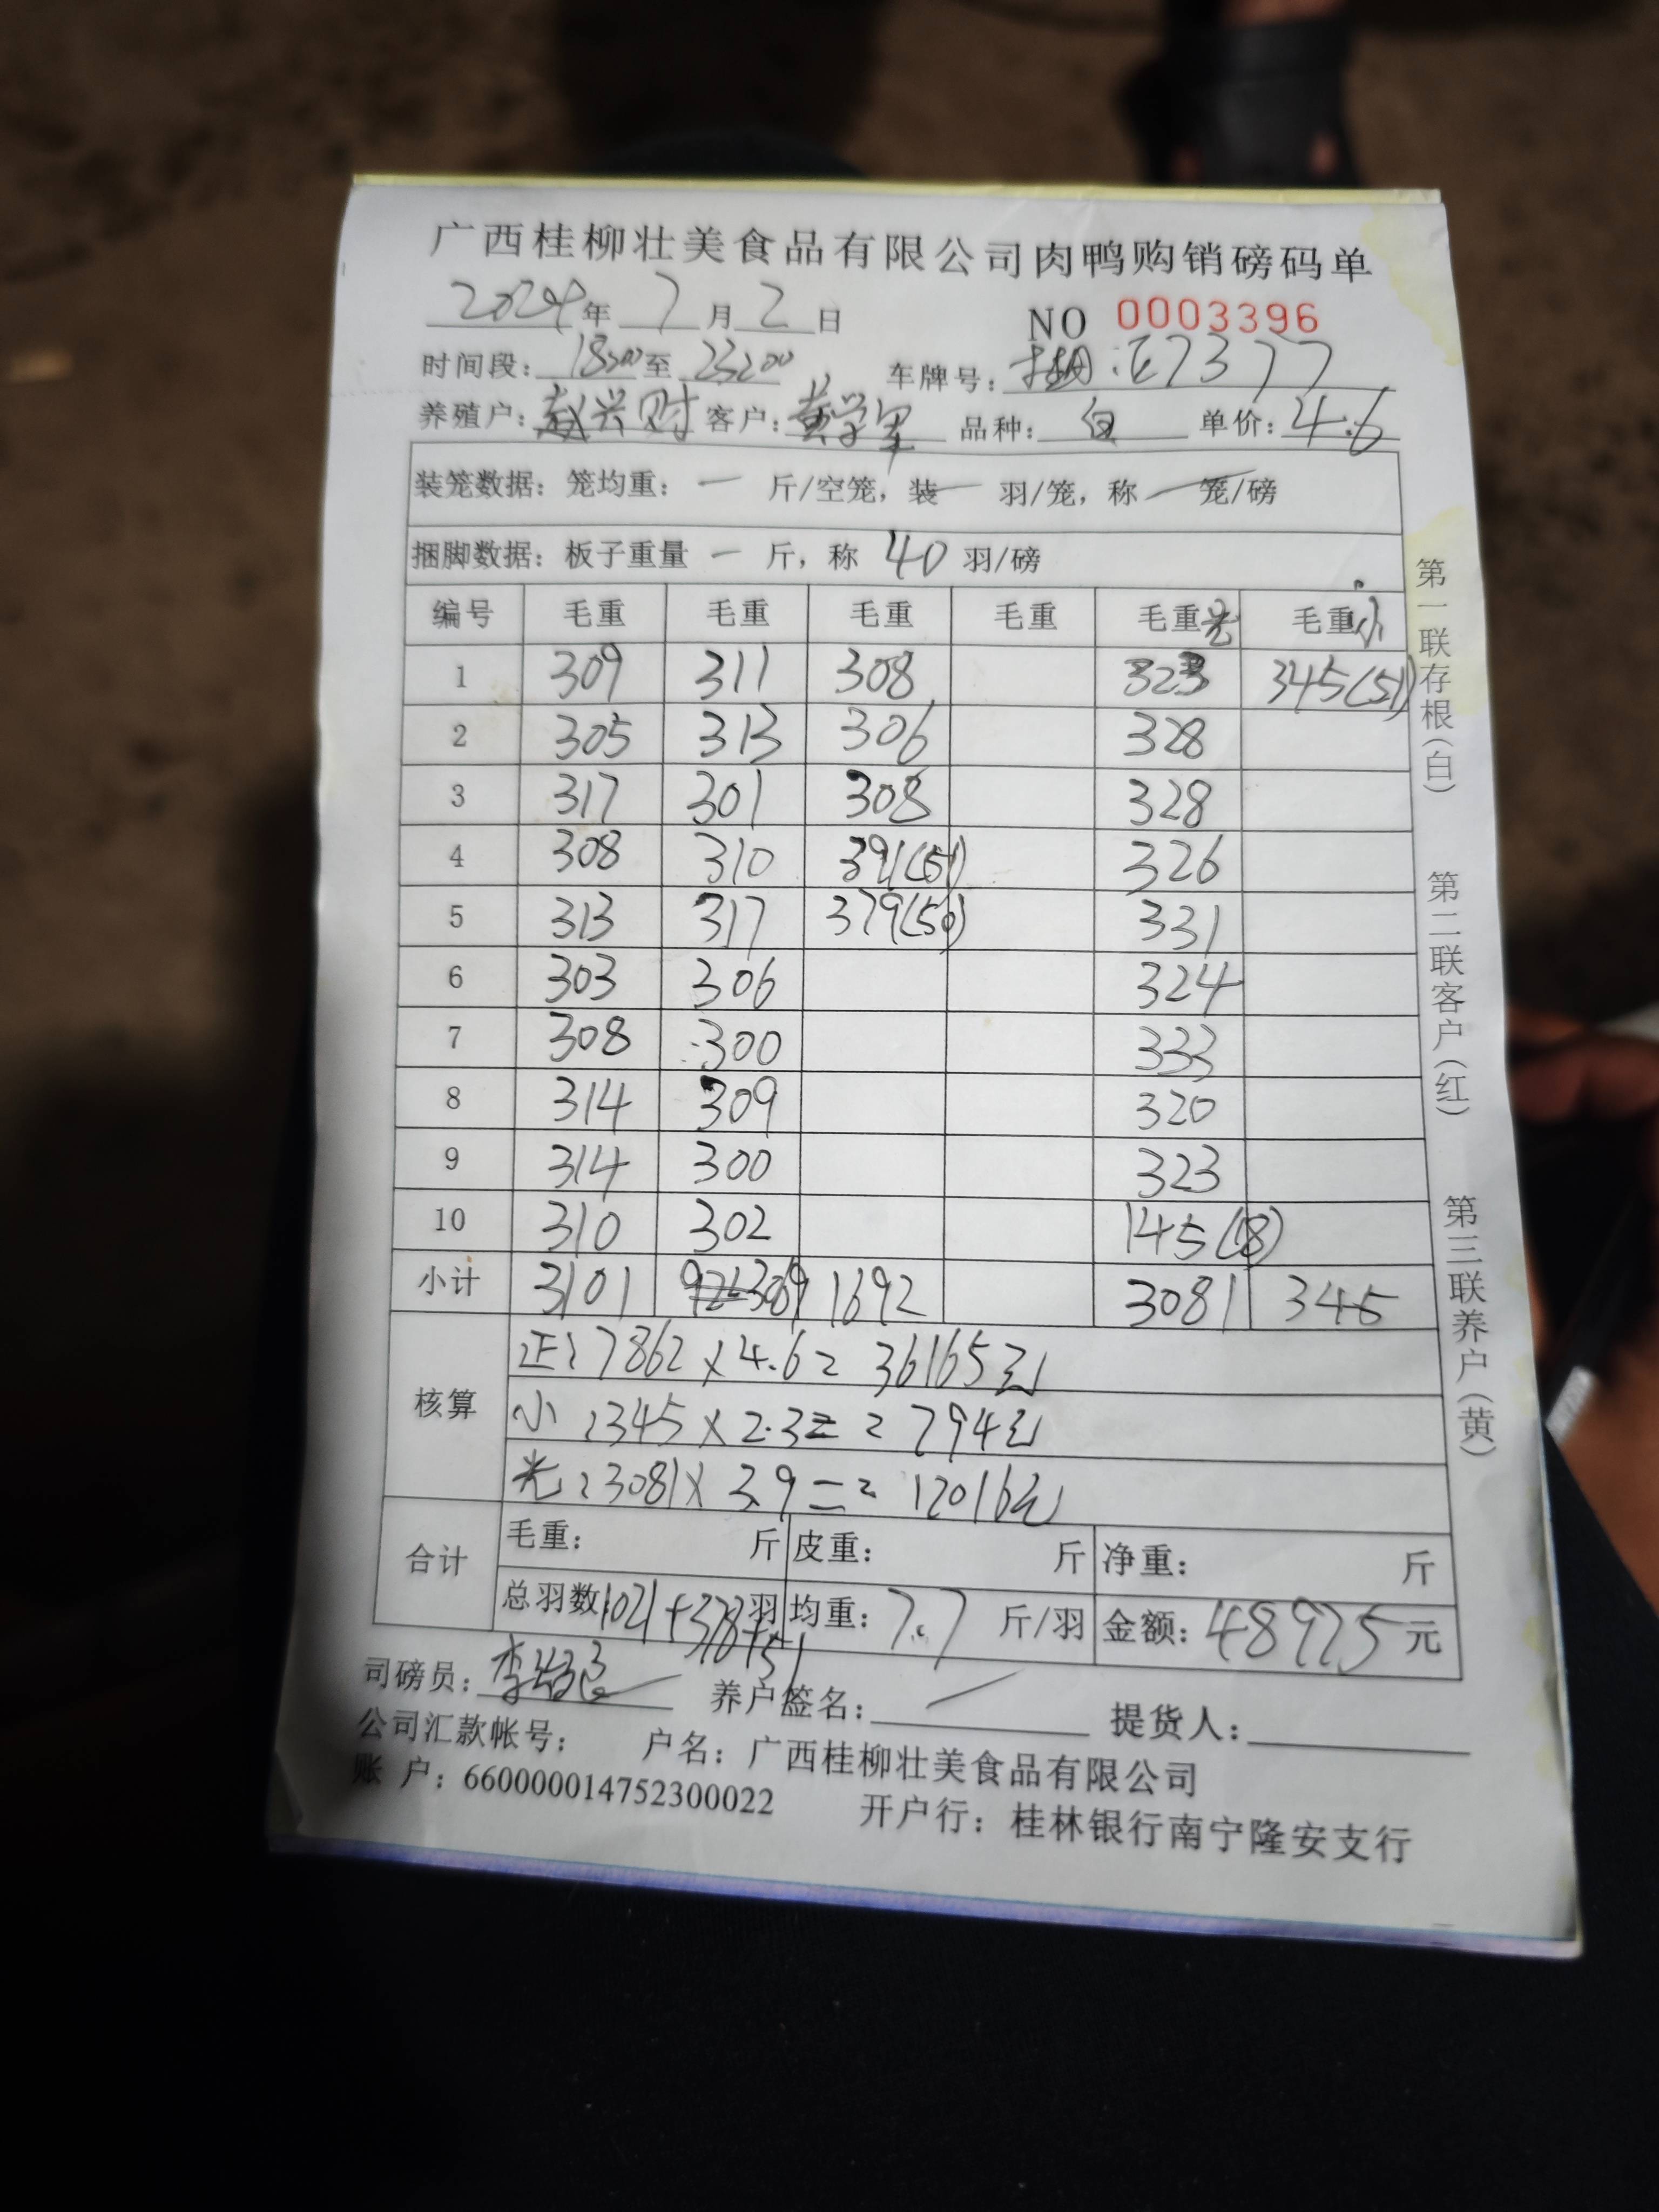 广西桂柳壮美食品有限公司肉鸭购销磅码单
2024年 7月 2日 NO 0003396
时间段: 18:00至 23:00 车牌号: E7377
养殖户: 兴财 客户: 黄学军 品种: 白 单价: 4.6
装笼数据: 笼均重: 一 斤/空笼, 装 一 羽/笼, 称 一 笼/磅
捆脚数据: 板子重量 一 斤, 称 40 羽/磅
编号 毛重 毛重 毛重 毛重 毛重光 毛重小
1 309 311 308 323 345(51)
2 305 313 306 328
3 317 301 308 328
4 308 310 391(51) 326
5 313 317 379(50) 331
6 303 306 324
7 308 300 333
8 314 309 320
9 314 300 323
10 310 302 145(18)
小计 3101 3069 1692 3081 345
核算
正: 7862 × 4.6 = 36165元
小: 345 × 2.3 = 794元
光: 3081 × 3.9 = 12016元
合计
毛重: 斤 皮重: 斤 净重: 斤
总羽数 1021+378+51 羽 均重: 7.7 斤/羽 金额: 48975 元
司磅员: 李 养户签名: 提货人:
公司汇款帐号: 户名: 广西桂柳壮美食品有限公司
账 户: 660000014752300022 开户行: 桂林银行南宁隆安支行
第一联存根(白) 第二联客户(红) 第三联养户(黄)